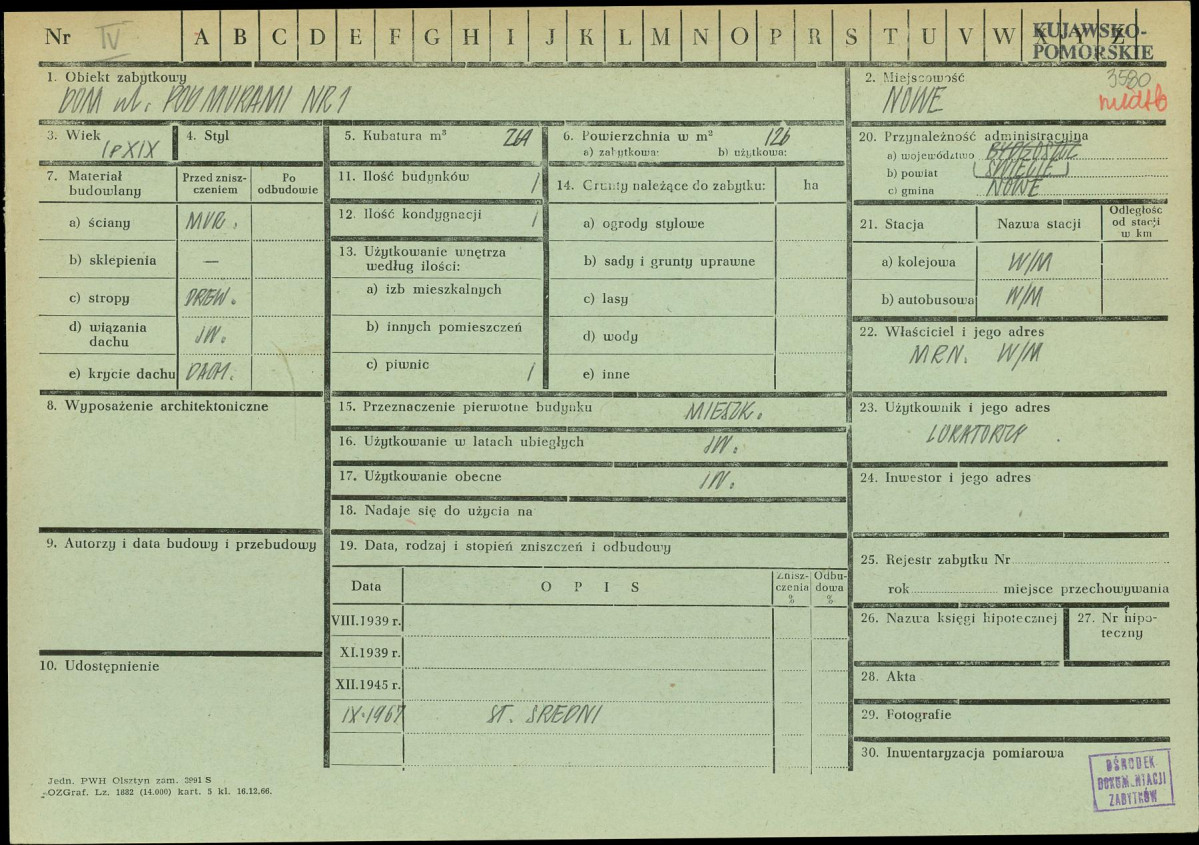 Nr IV A B C D E F G H I J K L M N O P R S T U V W X Y Z
KUJAWSKO-
POMORSKIE
1. Obiekt zabytkowy
DOM ul. POD MURAMI NR 1
2. Miejscowość
NOWE
3580
3. Wiek
I p XIX
4. Styl
5. Kubatura m³ 264
6. Powierzchnia w m² 126
a) zabytkowa: b) użytkowa:
20. Przynależność administracyjna
a) województwo BYDGOSZCZ
b) powiat ŚWIECIE
c) gmina NOWE
7. Materiał
budowlany
Przed znisz-
czeniem
Po
odbudowie
a) ściany MUR.
b) sklepienia —
c) stropy DREW.
d) wiązania
dachu JW.
e) krycie dachu DACH.
11. Ilość budynków 1
12. Ilość kondygnacji 1
13. Użytkowanie wnętrza
według ilości:
a) izb mieszkalnych
b) innych pomieszczeń
c) piwnic 1
14. Grunty należące do zabytku: ha
a) ogrody stylowe
b) sady i grunty uprawne
c) lasy
d) wody
e) inne
21. Stacja Nazwa stacji
Odległość
od stacji
w km
a) kolejowa W/M
b) autobusowa W/M
22. Właściciel i jego adres
MRN. W/M
8. Wyposażenie architektoniczne
15. Przeznaczenie pierwotne budynku MIESZK.
16. Użytkowanie w latach ubiegłych JW.
17. Użytkowanie obecne JW.
18. Nadaje się do użycia na
23. Użytkownik i jego adres
LOKATORZY
24. Inwestor i jego adres
9. Autorzy i data budowy i przebudowy
19. Data, rodzaj i stopień zniszczeń i odbudowy
Data OPIS
Znisz-
czenia
%
Odbu-
dowa
%
VIII.1939 r.
XI.1939 r.
XII.1945 r.
IX.1967 ST. ŚREDNI
25. Rejestr zabytku Nr
rok miejsce przechowywania
26. Nazwa księgi hipotecznej
27. Nr hipo-
teczny
10. Udostępnienie
28. Akta
29. Fotografie
30. Inwentaryzacja pomiarowa
OŚRODEK
DOKUMENTACJI
ZABYTKÓW
Jedn. PWH Olsztyn zam. 3991 S
OZGraf. Lz. 1882 (14.000) kart. 5 kl. 16.12.66.